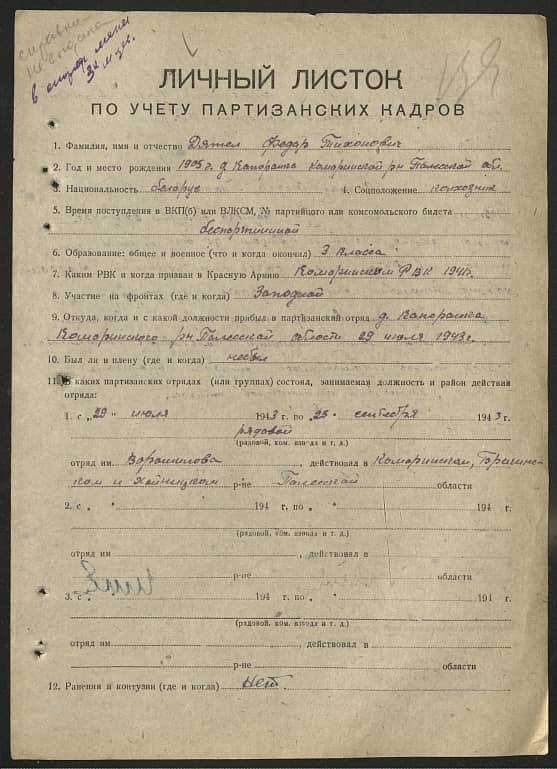 справка
не выдана
в
ЛИЧНЫЙ ЛИСТОК
ПО УЧЕТУ ПАРТИЗАНСКИХ КАДРОВ
1. Фамилия, имя и отчество Дятел Федор Тихонович
2. Год и место рождения 1905 г. д Капоранка Комаринский р-н Полесской об.
3. Национальность белорус 4. Соцположение колхозник
5. Время поступления в ВКП(б) или ВЛКСМ, № партийного или комсомольского билета
беспартийный
6. Образование: общее и военное (что и когда окончил) 3 класса
7. Каким РВК и когда призван в Красную Армию Комаринским РВК 1941 г.
8. Участие на фронтах (где и когда) Западной
9. Откуда, когда и с какой должности прибыл в партизанский отряд д. Капоранка
Комаринского р-н Полесской области 29 июля 1943 г.
10. Был ли в плену (где и когда) не был
11. В каких партизанских отрядах (или группах) состоял, занимаемая должность и район действия
отряда:
1. с „29" июля 1943 г. по „25" сентебря 1943 г.
рядовой
(рядовой, ком. взвода и т. д.)
отряд им. Ворошилова, действовал в Комаринском, Брагинс-
ком и Хойницком р-не Полесской области
2. с „ " 194 г. по „ " 194 г.
(рядовой, ком. взвода и т. д.)
отряд им , действовал в
р-не области
3. с „ 194 г. по „ " 194 г.
(рядовой, ком. взвода и т. д.)
отряд им действовал в
р-не области
12. Ранения и контузии (где и когда) Нет.